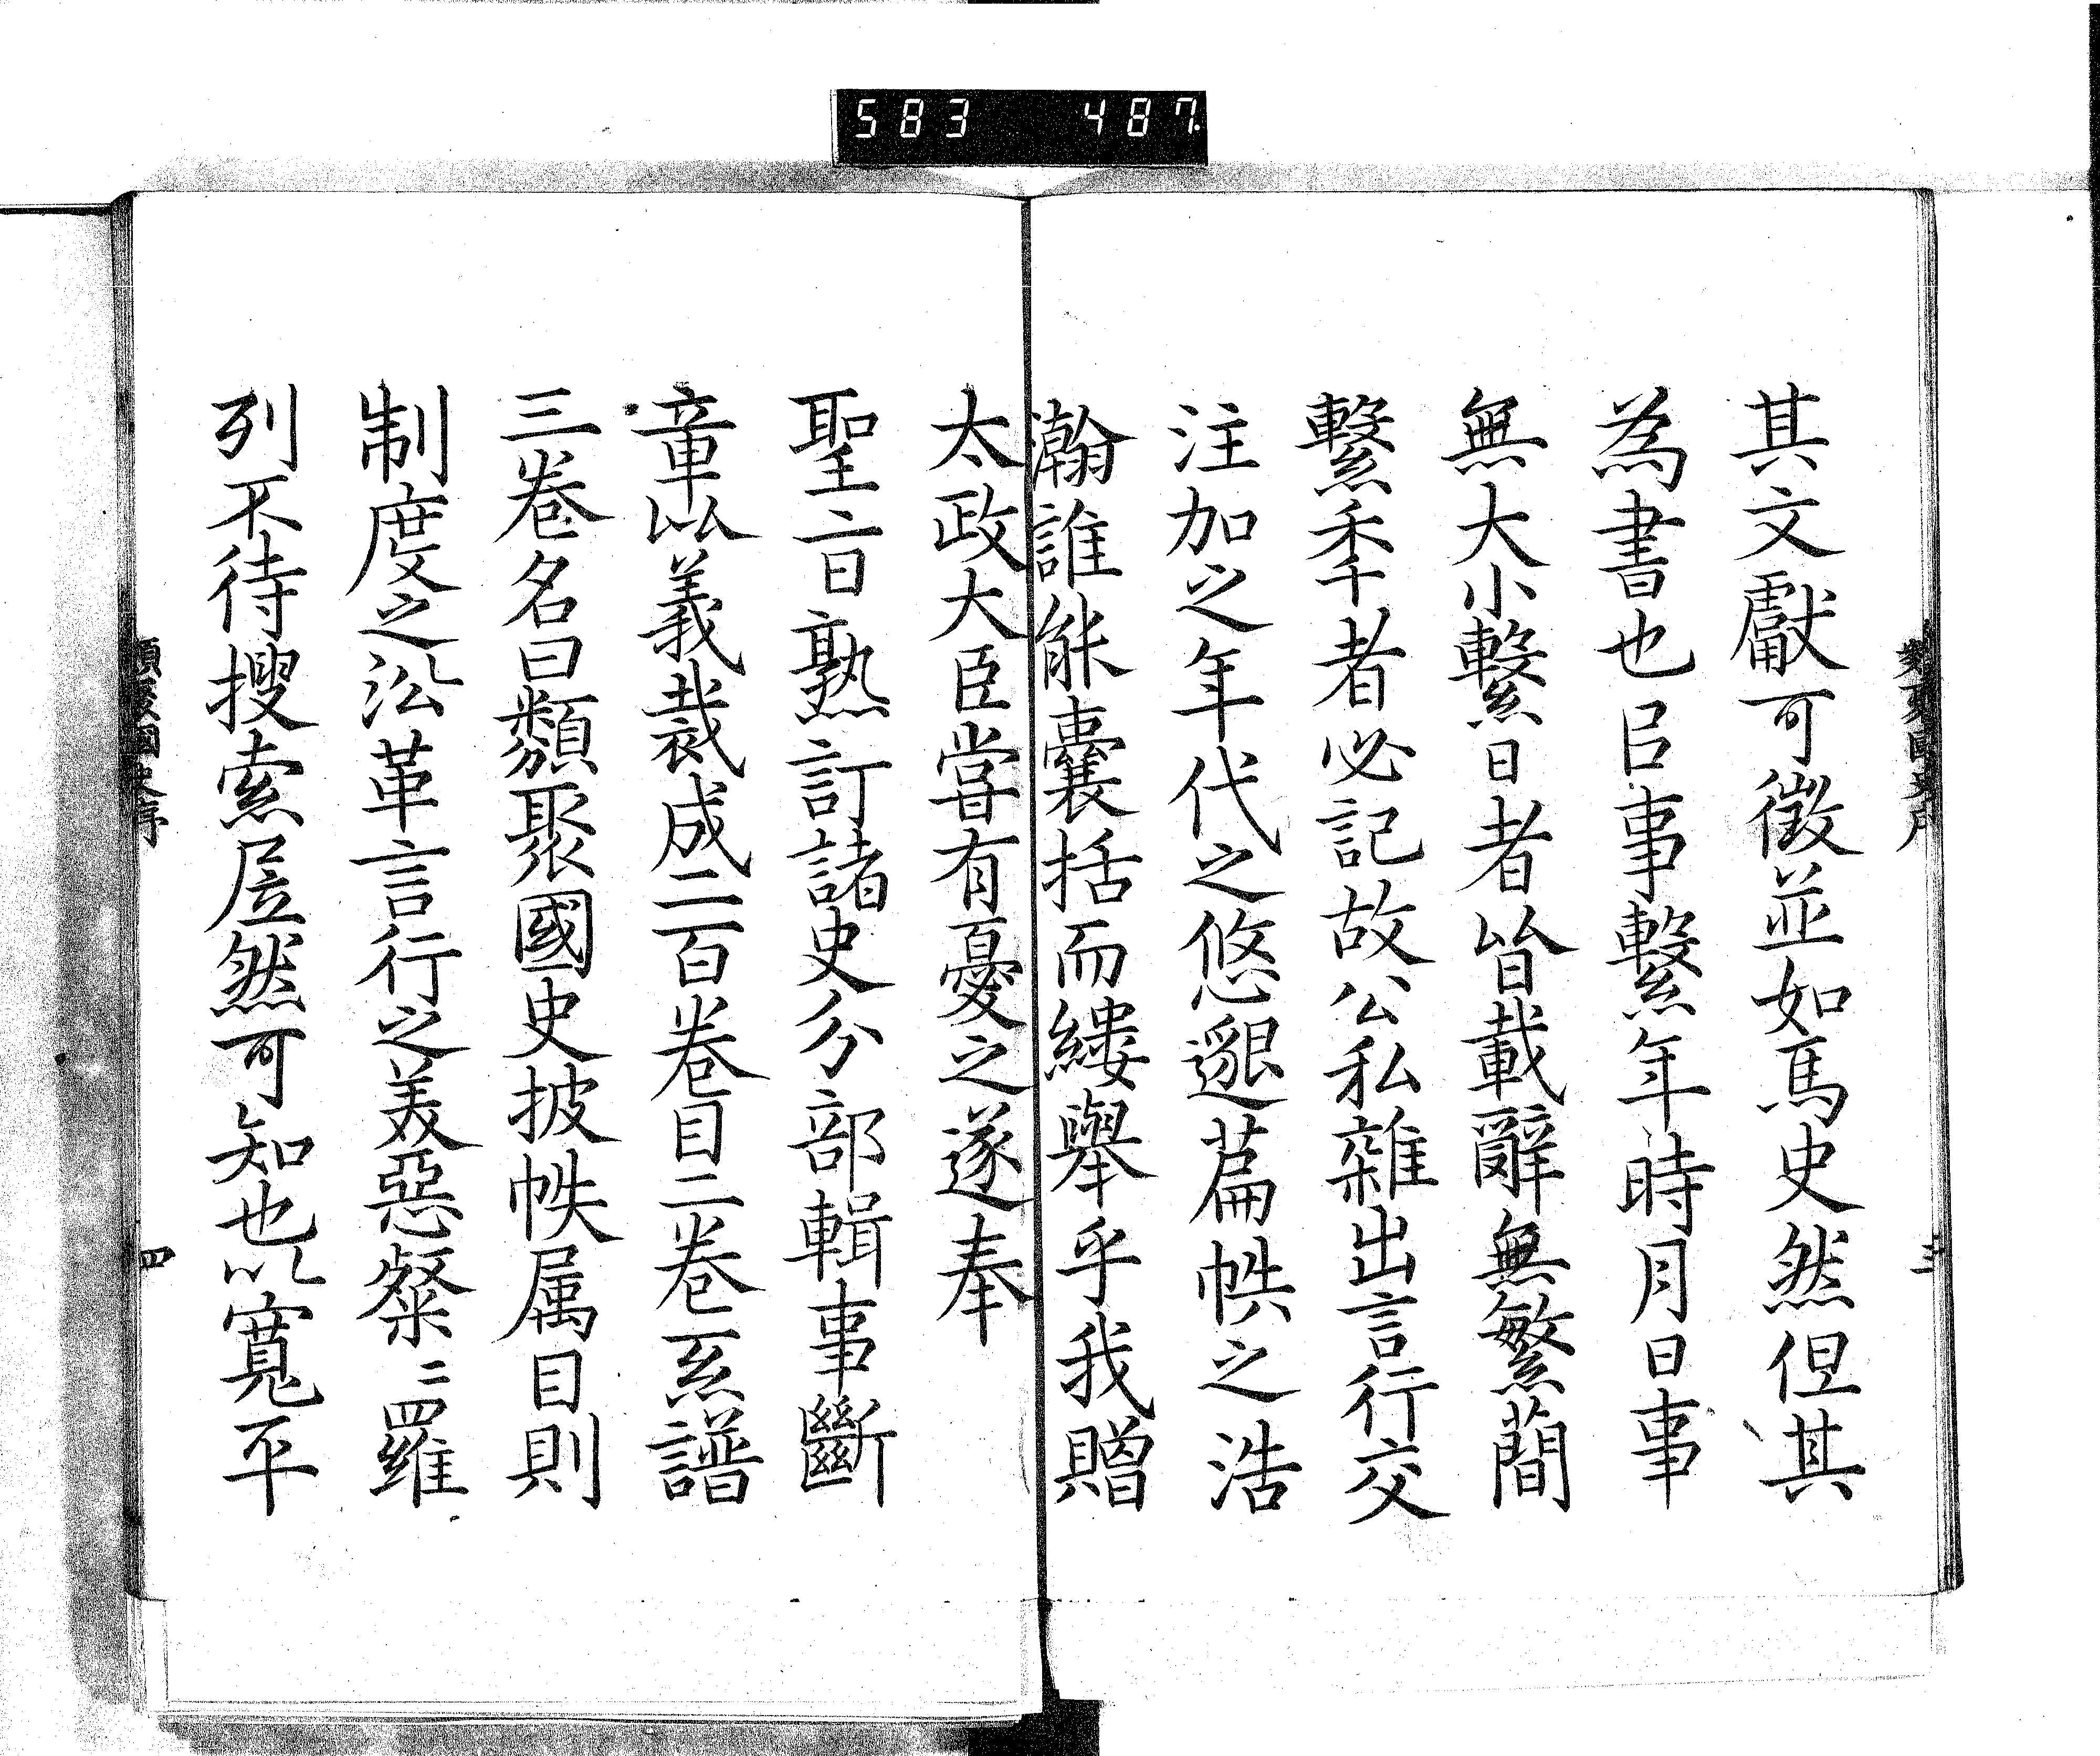 583 487
其文獻可徵並如馬史然但其
為書也㠯事繫年時月日事
無大小繫日者皆載辭無繁蕳
繫秊者必記故公私雜出言行交
注加之年代之悠邈篇帙之浩
瀚誰能囊括而縷舉乎我贈
太政大臣嘗有憂之遂奉
聖旨熟訂諸史分部輯事斷
章以義裁成二百卷目二卷系譜
三卷名曰類聚國史披帙属目則
制度之㳂革言行之美惡粲〻羅
列不待搜索居然可知也以寬平
三
四